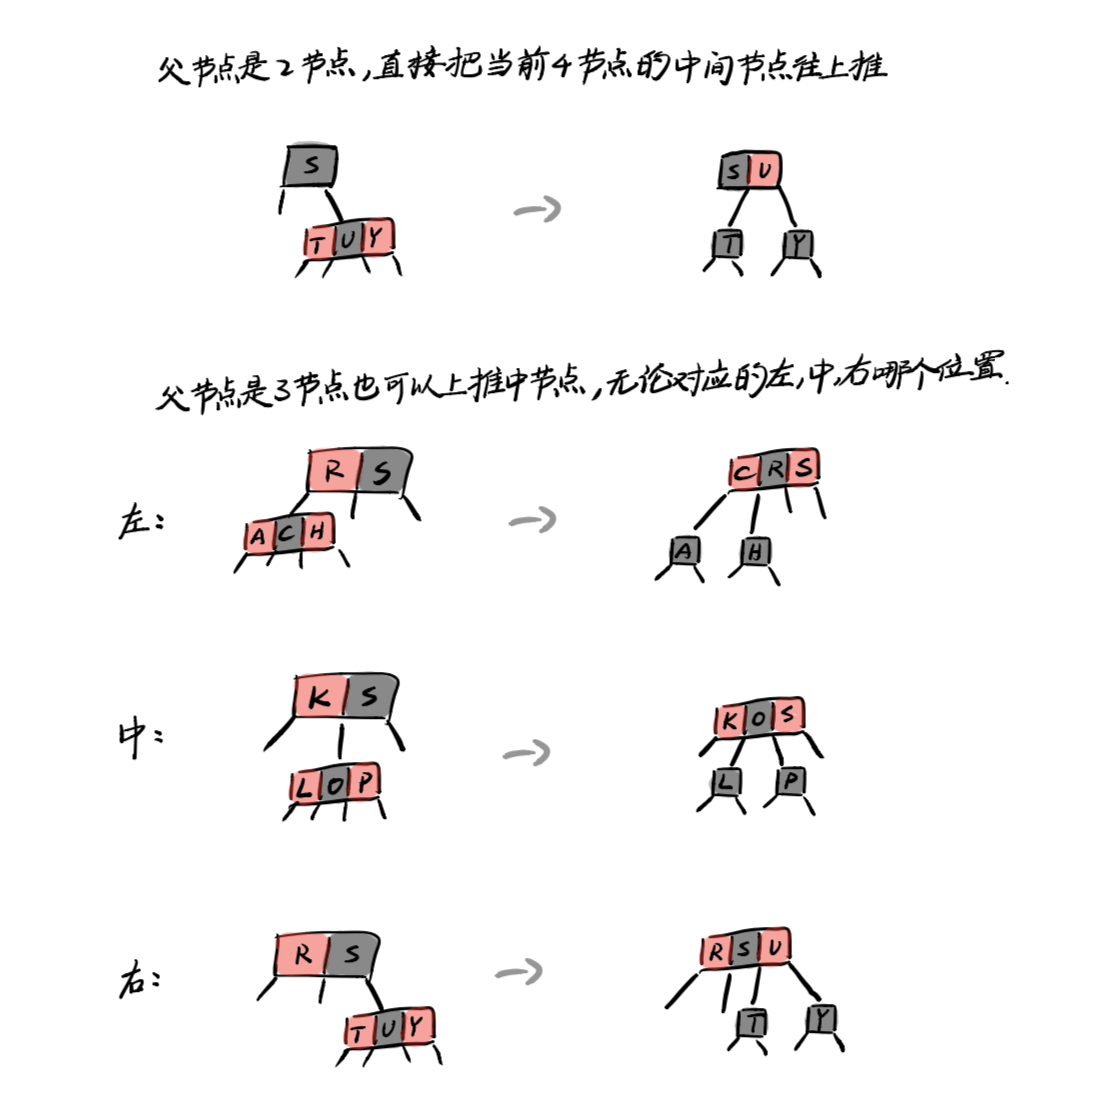 父节点是2节点,直接把当前4节点的中间节点往上推
S
T U Y
S U
T Y
父节点是3节点也可以上推中节点,无论对应的左,中,右哪个位置.
左:
R S
A C H
C R S
A H
中:
K S
L O P
K O S
L P
右:
R S
T U Y
R S U
T Y